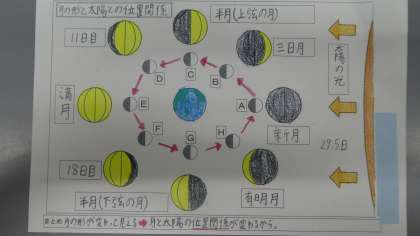 月の形と太陽との位置関係
半月(上弦の月)
11日目
三日月
太陽の光
D
C
B
満月
E
A
新月
F
G
H
29.5日
18日目
半月(下弦の月)
有明月
まとめ 月の形が変わって見える➡月と太陽の位置関係が変わるから。